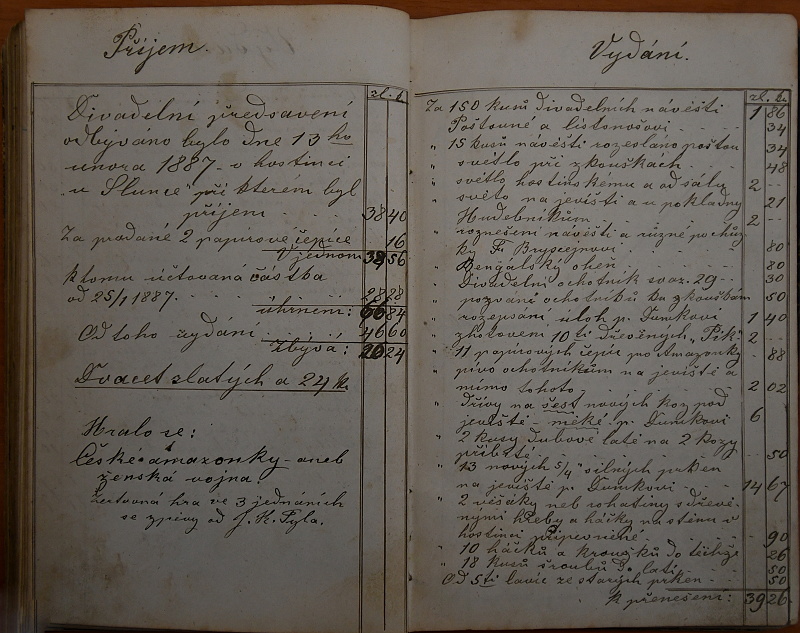 Příjem.
zl. k.
Divadelní předsavení
odbýváno bylo dne 13 ho
unora 1887 v hostinci
u Slunce při kterém byl
příjem . . . 38 40
Za prodané 2 papírové čepice 16
V jednom 38 56
k tomu účtovaná částka
od 25/1 1887. . . 28 28
úhrnem: 66 84
Od toho vydání . . . 46 60
Zbývá: 20 24
Dvacet zlatých a 24 k.
Hralo se:
České amazonky aneb
ženská vojna
žertovná hra ve 3 jednáních
se zpěvy od J. K. Tyla.
Vydání.
zl. k.
Za 150 kusů divadelních návěstí 1 86
Poštovné a listonošovi . . . 34
" 15 kusů návěstí rozesláno poštou 34
" světlo při zkouškách . . . 48
" světlo hostinskému a od sálu 2 - -
" světo na jevišti a u pokladny 21
" Hudebníkům . . . 2 - -
" roznešení návěstí a různé pochůz
ky Fr. . . . 80
" Bengálský oheň . . . 80
" Divadelní ochotník svaz. 29 - - 30
" pozvání ochotníků ku zkouškám 50
" rozepsání úloh p. Tumkovi 1 40
" zhotovení 10 ti dřevěných "Pik" 2 - -
" 11 papírových čepic po Amazonky 88
" pivo ochotníkům na jeviště a
mimo tohoto . . . 2 02
" dříví na šest nových koz pod
jeviště měké p. Tumkovi 6
" 2 kusy dubové latě na 2 kozy
přibité . . . 50
" 13 nových 5/4" silných prken
na jeviště p. Tumkovi . . . 14 67
" 2 věšáky neb rohatiny s dřevě-
nými hřeby a háčky na stěnu v
hostinci připevněné . . . 90
" 10 háčků a kroužků do těchže 26
" 18 kusů šroubů do latí . . . 50
Od 5ti lavic ze starých prken - - 50
k přenešení: 39 26